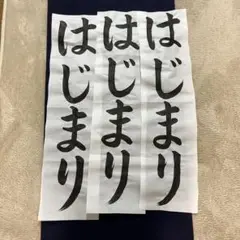 はじまり
はじまり
はじまり